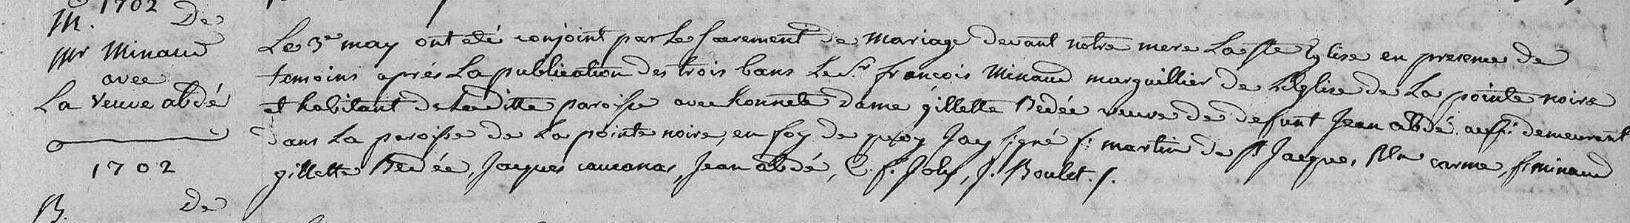 1702
M. De
Mr Minaud
avec
La Veuve abdé
1702
B. De
Le 3e may ont été conjoint par Le sacrement de Mariage devant notre mere La Ste Eglise en presence de
temoins aprés La publication des trois bans Le Sr françois Minaud marguillier de L'Eglise de La pointe noire
et habitant de La ditte paroisse avec honnete dame gillette Bedée veuve de defunt Jean abdé aussi demeurant
dans La paroisse de La pointe noire, en foy de quoy Jay signé f. martin de St Jacques, Rlx carme, f. minaud
gillette Bedée, Jacques caucanas, Jean abdé, C. f. Joly, J. Boulet.